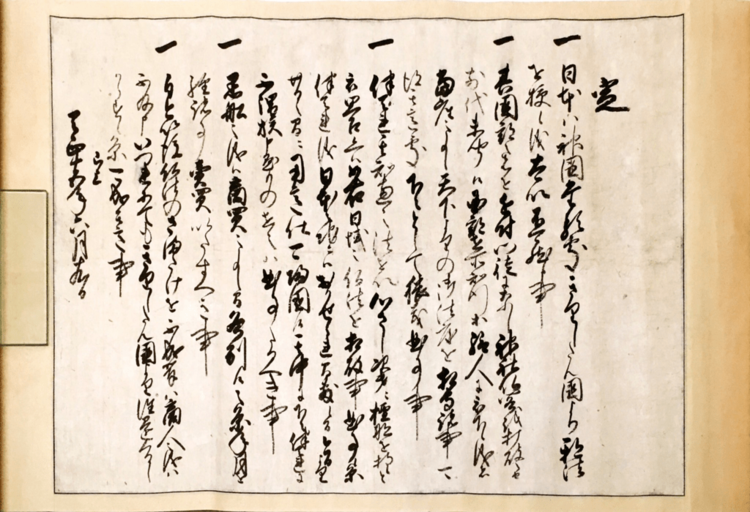 定
一 日本ハ神国たる処きりしたん国より邪法
を授候儀太以不可然候事
一 其国郡之者を近付門徒になし神社仏閣を打破之
由前代未聞候国郡在所知行等給人に被下候儀は
当座之事候天下よりの御法度を相守諸事可
得其意処下々として猥義曲事事
一 伴天連其知恵之法を以心さし次第ニ檀那を持候と
被思召候へは如右日域之仏法を相破事曲事候条
伴天連儀日本之地ニハおかせられ間敷候間今日より
廿日之間ニ用意仕可帰国候其中に下々伴天連に
不謂族申懸もの在之ハ曲事たるへき事
一 黒船之儀ハ商買之事候間各別候之条年月を
経諸事売買いたすへき事
一 自今以後仏法のさまたけを不成輩ハ商人之儀は
不及申いつれにてもきりしたん国より往還くる
しからす候条可成其意事
已上
天正十五年六月十九日